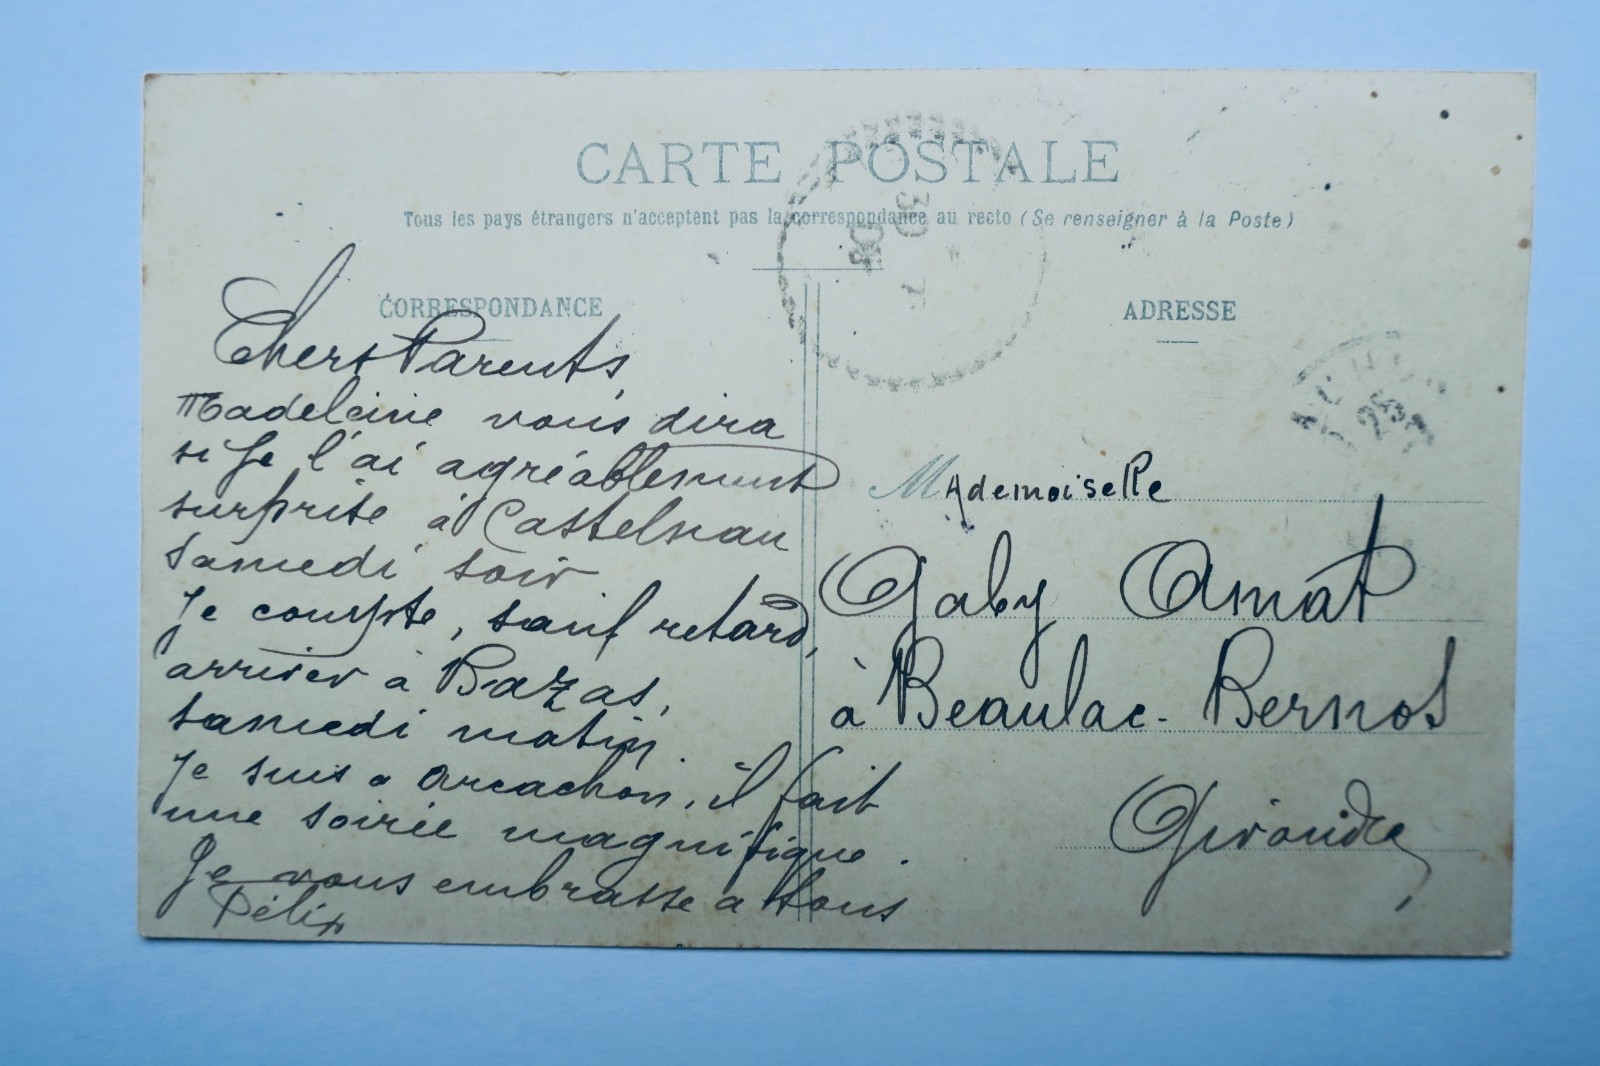 CARTE POSTALE
Tous les pays étrangers n'acceptent pas la correspondance au recto (Se renseigner à la Poste)
CORRESPONDANCE
Chers Parents,
Madeleine vous dira
si je l'ai agréablement
surprise à Castelnau
samedi soir
Je compte, sauf retard,
arriver à Bazas,
samedi matin.
Je suis a Arcachon, il fait
une soirée magnifique.
Je vous embrasse a tous
Félix
ADRESSE
Mademoiselle
Gaby Amat
à Beaulac-Bernos
Gironde
30